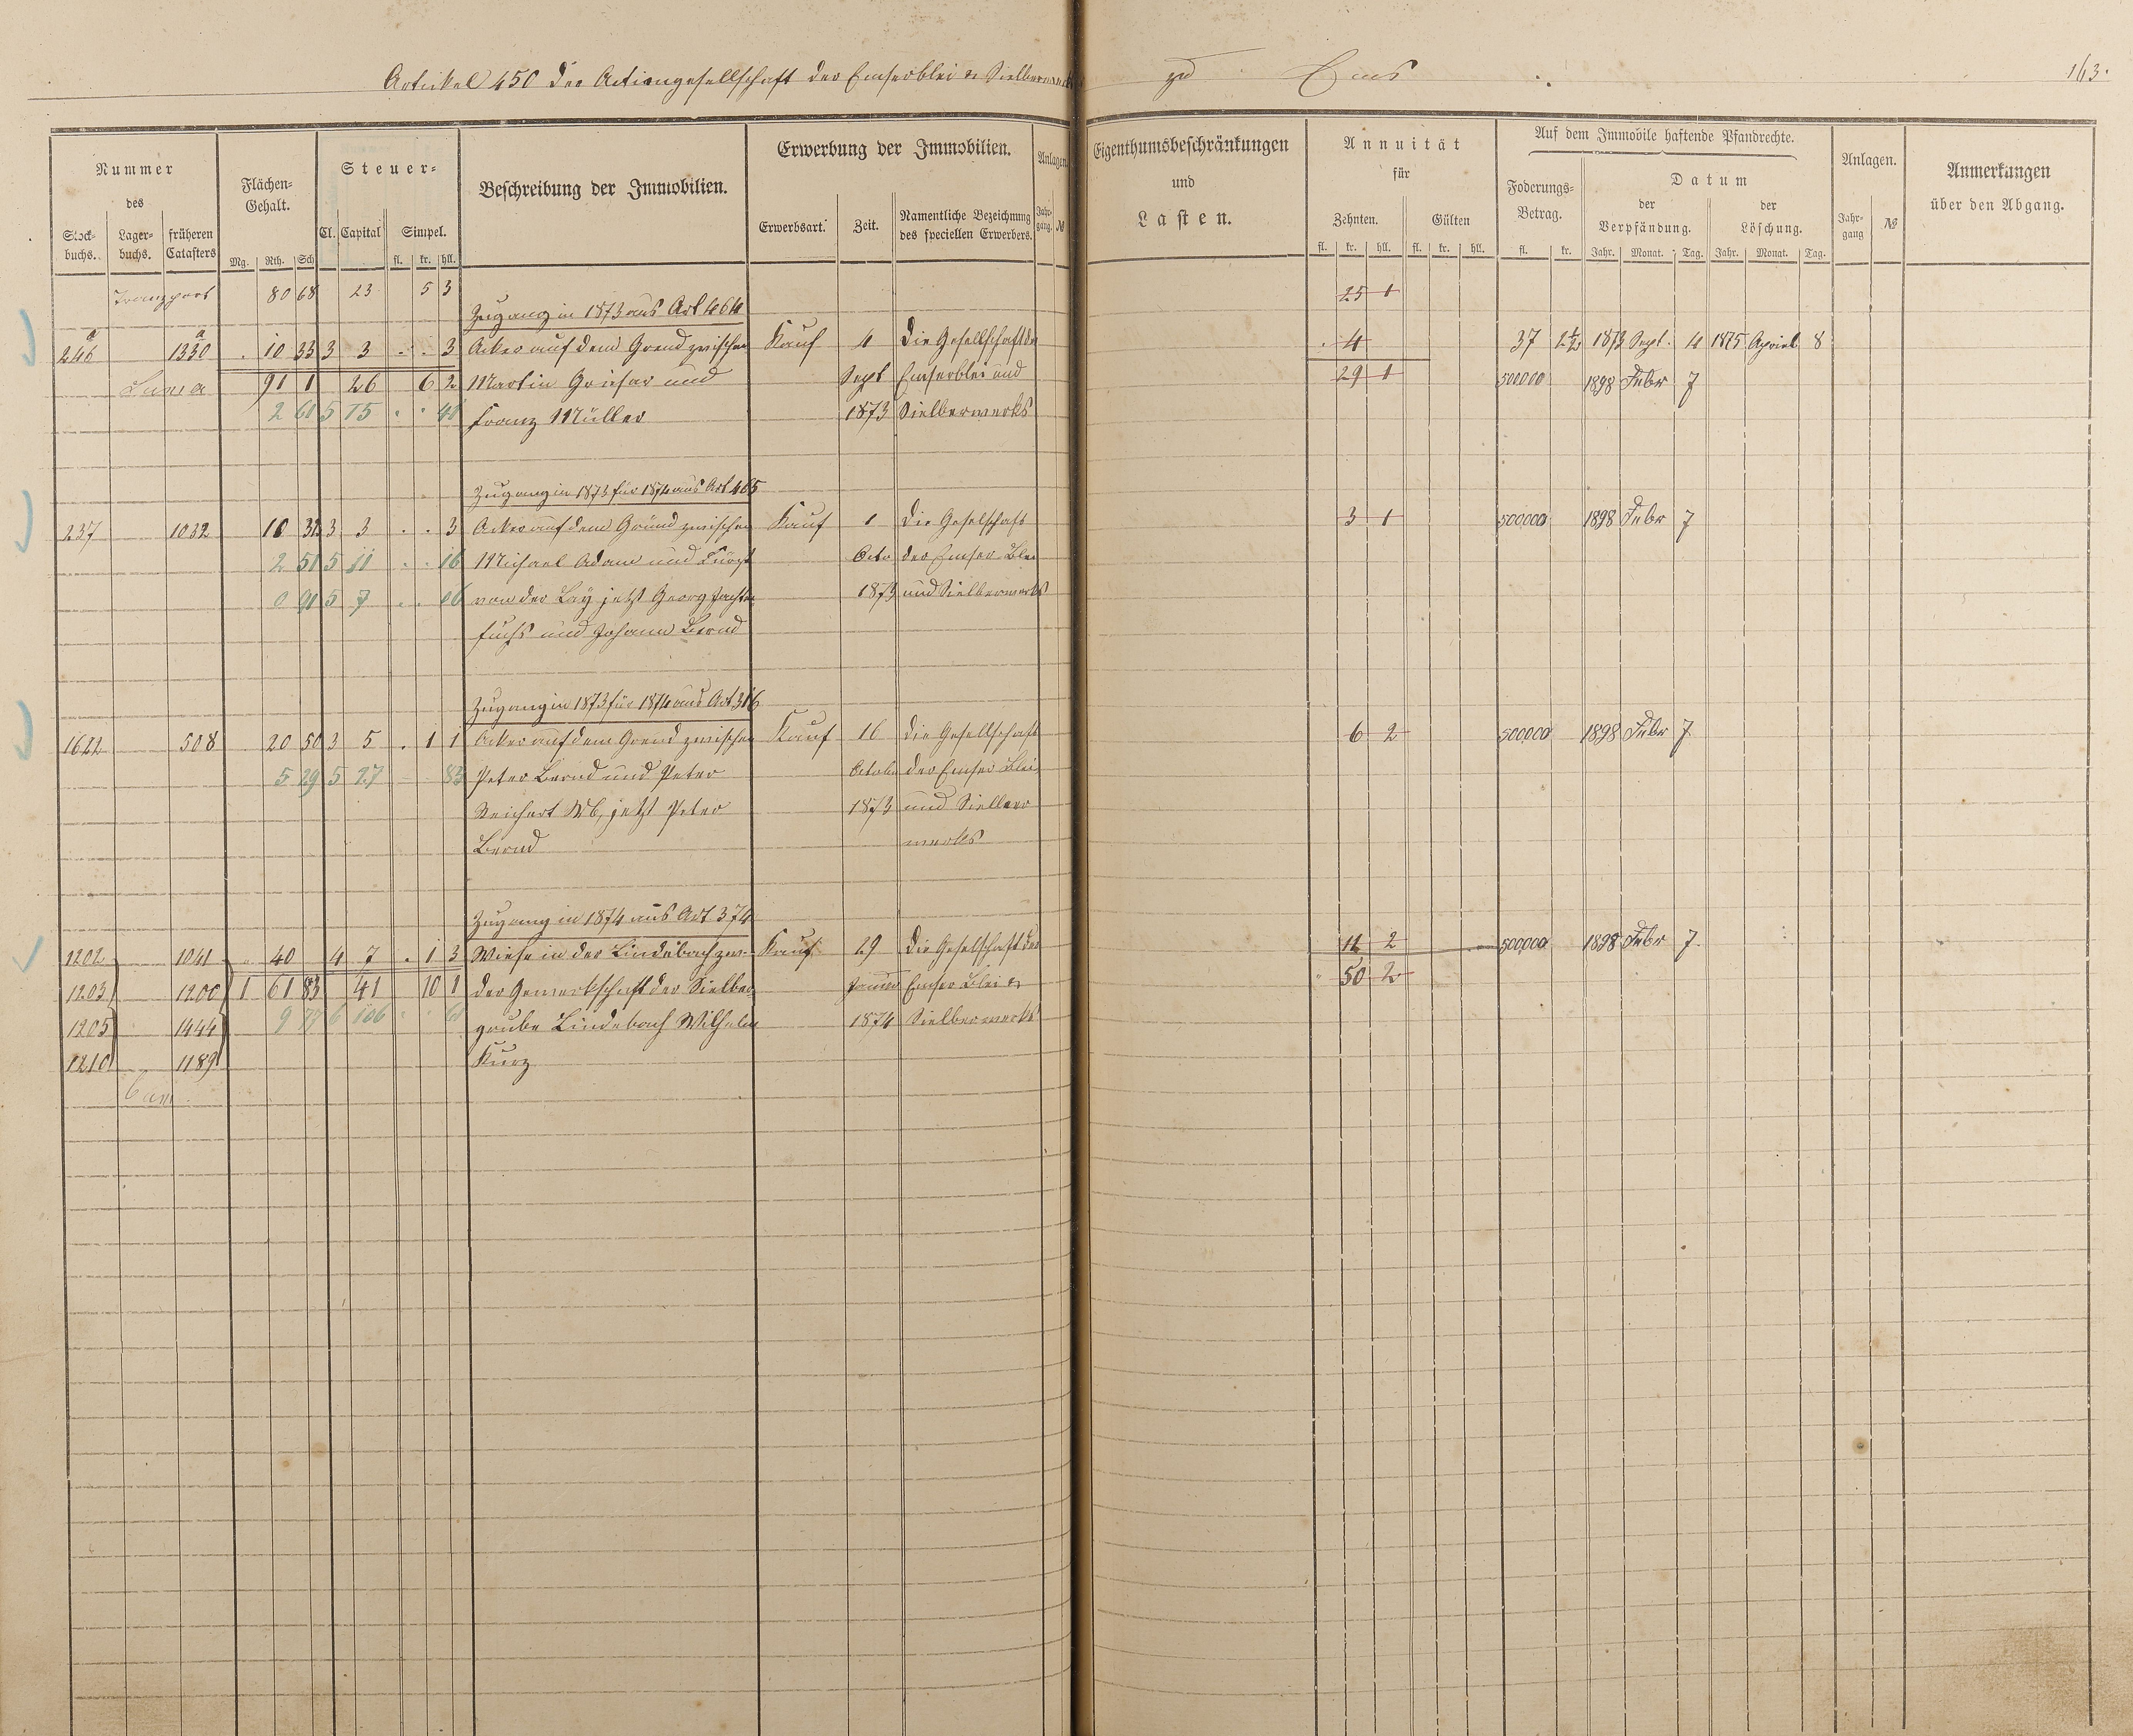 Artikel 450 der Actiengesellschaft der Emserblei & Sielberwerke zu Ems 163.
Nummer des
Stockbuchs. Lagerbuchs. früheren Catasters
Flächen-Gehalt.
Mg. Rth. Sch
Steuer-
Cl. Capital Simpel.
fl. kr. hll.
Beschreibung der Immobilien.
Erwerbung der Immobilien.
Erwerbsart. Zeit. Namentliche Bezeichnung des speciellen Erwerbers.
Anlagen.
Jahrgang. №
Eigenthumsbeschränkungen und Lasten.
Annuität für
Zehnten. Gülten
fl. kr. hll. fl. kr. hll.
Auf dem Immobile haftende Pfandrechte.
Foderungs-Betrag.
fl. kr.
Datum
der Verpfändung. der Löschung.
Jahr. Monat. Tag. Jahr. Monat. Tag.
Anlagen.
Jahrgang №
Anmerkungen über den Abgang.
Transport 80 68 23 5 3 25 1
Zugang in 1873 aus Art 464
246 a 1330 a 10 33 3 3 . . 3 Acker auf dem Grend zwischen Kauf 4 die Gesellschaft der 4 37 2½ 1873 Sept. 4 1875 Apriel 8
91 1 26 6 2 Martin Grisar und Sept Emserblei und 29 1 500000 1898 Febr 7
2 61 5 15 . . Franz Müller 1873 Sielberwerks
Zugang in 1873 für 1874 aus Art 465
237 1032 10 32 3 3 . . 3 Acker auf dem Grund zwischen Kauf 1 die Geselschaft 3 1 500,000 1898 Febr 7
2 51 5 11 . . 16 Michael Adam und Octo der Emser Blei
0 91 5 7 . . 06 von der Lay jetzt Georg 1873 und Sielberwerks
fuchs und Johann Bernd
Zugang in 1873 für 1874 aus Art 316
1622 508 20 50 3 5 . 1 1 Acker auf dem Grend zwischen Kauf 16 die Gesellschaft 6 2 500,000 1898 Febr 7
5 29 5 27 83 Peter Bernd und Peter Octobr der Emser Blei
Reichert Wb, jetzt Peter 1873 und Sielber
Bernd werks
Zugang in 1874 aus Art 374
1202 1041 40 4 7 . 1 3 Wiese in der Lindebach zw. Kauf 29 die Geselschaft der 12 2 500,000 1898 Febr 7.
1203 1200 1 61 83 41 10 1 der Gewerkschaft der Sielber Januar Emser Blei & 50 2
1205 1444 9 77 6 106 grube Lindebach Wilhelm 1874 Sielberwerks
1210 1189 Kurz